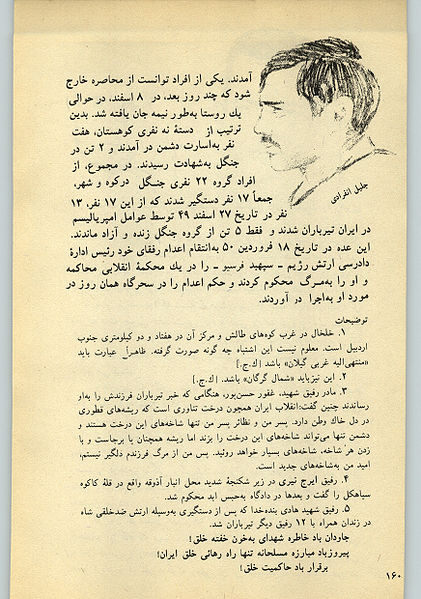 آمدند. یکی از افراد توانست از محاصره خارج
شود که چند روز بعد، در ۸ اسفند، در حوالی
یك روستا به‌طور نیمه جان یافته شد. بدین
ترتیب از دستهٔ نه نفری کوهستان، هفت
نفر به‌اسارت دشمن در آمدند و ۲ تن در
جنگل به‌شهادت رسیدند. در مجموع، از
افراد گروه ۲۲ نفری جنگل درکوه و شهر،
جمعاً ۱۷ نفر دستگیر شدند که از این ۱۷ نفر، ۱۳
نفر در تاریخ ۲۷ اسفند ۴۹ توسط عوامل امپریالیسم
جلیل انفرادی
در ایران تیرباران شدند و فقط ۵ تن از گروه جنگل زنده و آزاد ماندند.
این عده در تاریخ ۱۸ فروردین ۵۰ به‌انتقام اعدام رفقای خود رئیس ادارهٔ
دادرسی ارتش رژیم ـ سپهبد فرسیو ـ را در یك محکمهٔ انقلابی محاکمه
و او را به‌مـرگ محکوم کردند و حکم اعدام را در سحرگاه همان روز در
مورد او به‌اجرا در آوردند.
توضیحات
۱. خلخال در غرب کوه‌های طالش و مرکز آن در هفتاد و دو کیلومتری جنوب
اردبیل است. معلوم نیست این اشتباه چه گونه صورت گرفته. ظاهـراً عبارت باید
«منتهی‌الیه غربی گیلان» باشد [ك.ج.]
۲. این نیزباید «شمال گرگان» باشد. [ك.ج.]
۳. مادر رفیق شهید، غفور حسن‌پور، هنگامی که خبر تیرباران فرزندش را به‌او
رساندند چنین گفت:انقلاب ایران همچون درخت تناوری است که ریشه‌های قطوری
در دل خاك وطن دارد. پسر من و نظائر پسر من تنها شاخه‌های این درخت هستند و
دشمن تنها می‌تواند شاخه‌های این درخت را بزند اما ریشه همچنان پا برجاست و با
زدن هر شاخه، شاخه‌های بسیار خواهد روئید. پس من از مرگ فرزندم دلگیر نیستم،
امید من به‌شاخه‌های جدید است.
۴. رفیق ایرج نیری در زیر شکنجهٔ شدید محل انبار آذوقه واقع در قلهٔ کاکوه
سیاهکل را گفت و بعدها در دادگاه به‌حبس ابد محکوم شد.
۵. رفیق شهید هادی بنده‌خدا که پس از دستگیری به‌وسیله ارتش ضدخلقی شاه
در زندان همراه با ۱۲ رفیق دیگر تیرباران شد.
جاودان باد خاطره شهدای به‌خون خفته خلق!
پیروزباد مبارزه مسلحانه تنها راه رهائی خلق ایران!
برقرار باد حاکمیت خلق!
۱۶۰